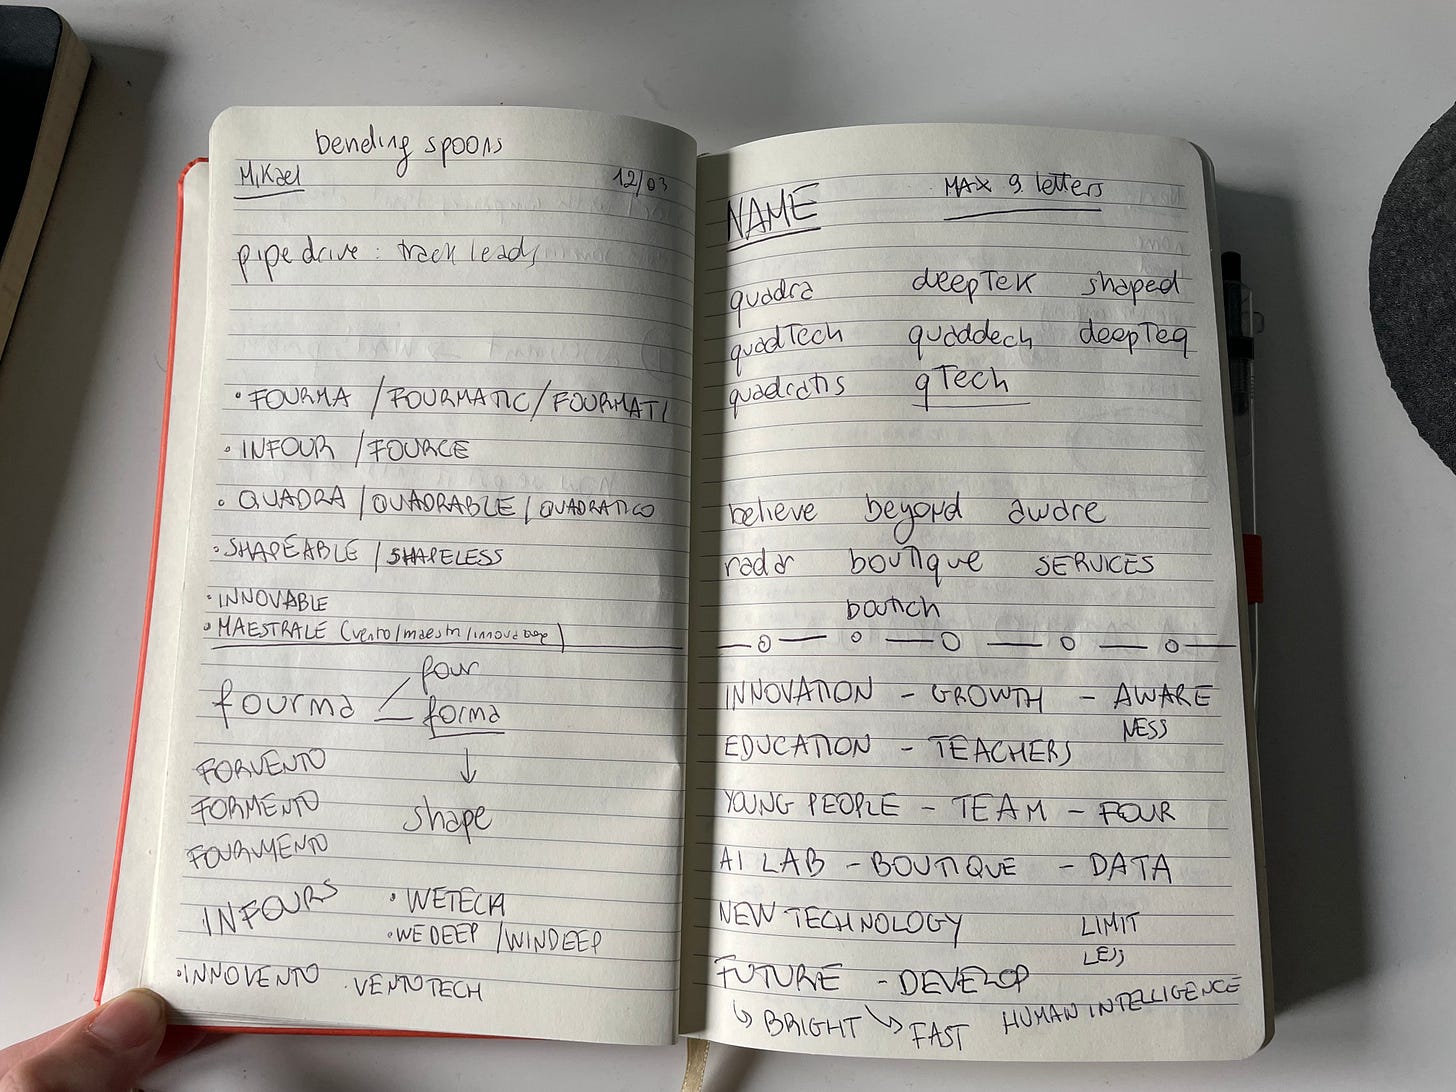 bending spoons
Mikael 12/03
pipedrive : track leads
• FOURMA / FOURMATIC / FOURMATI
• INFOUR / FOURCE
• QUADRA / QUADRABLE / QUADRATICO
• SHAPEABLE / SHAPELESS
• INNOVABLE
• MAESTRALE (vento/maestri/
four
fourma
forma
FORVENTO
FORMENTO
shape
FOURVENTO
INFOURS
• WETECH
• WEDEEP / WINDEEP
• INNOVENTO • VENTOTECH
NAME MAX 9 letters
quadra deepTek shaped
quadTech quaddech deepTeq
quadratis qTech
believe beyond aware
radar boutique SERVICES
INNOVATION - GROWTH - AWARE
NESS
EDUCATION - TEACHERS
YOUNG PEOPLE - TEAM - FOUR
AI LAB - BOUTIQUE - DATA
NEW TECHNOLOGY LIMIT
LESS
FUTURE - DEVELOP
↳ BRIGHT ↘ FAST HUMAN INTELLIGENCE